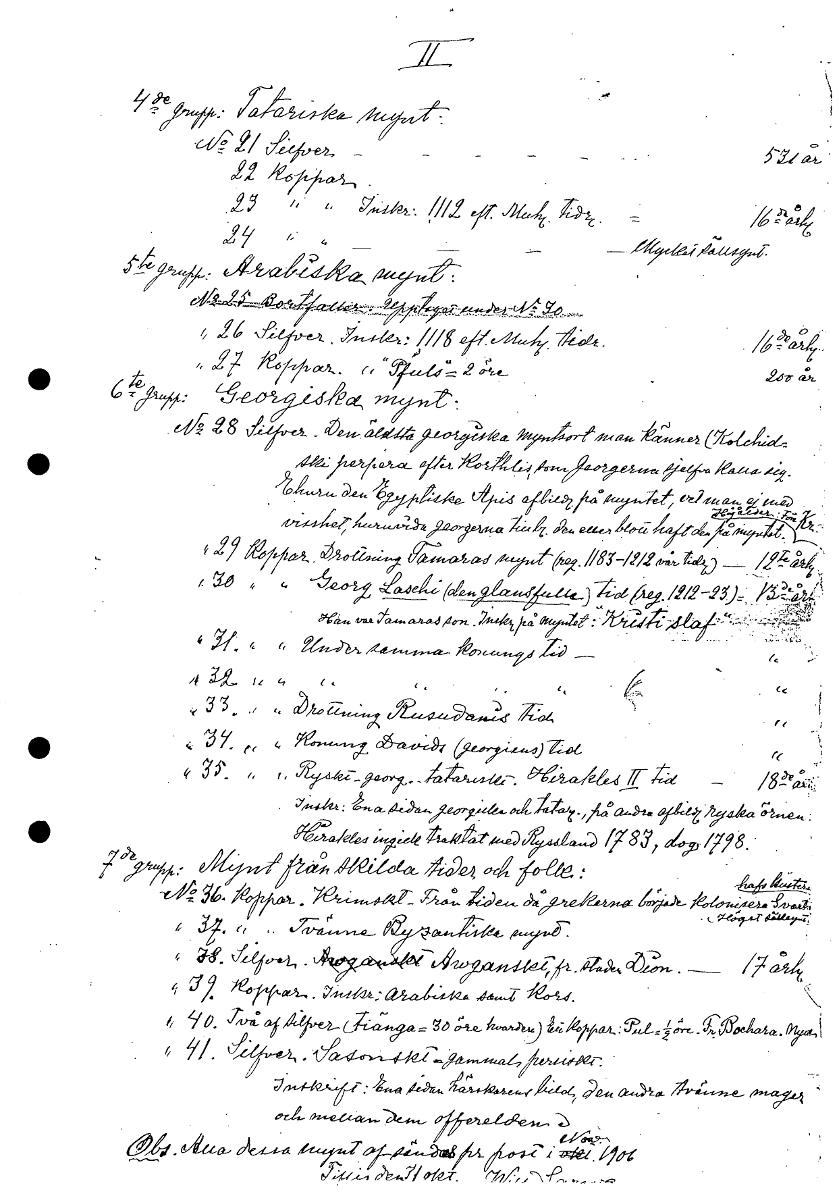 II
4de grupp: Tatariska mynt.
No 21 Silfver – – – – 531 år
22 Koppar
23 " " Inskr: 1112 eft. Muh. tidr. = 16de årh.
24 " " – – – – Mycket sällsynt.
5te grupp: Arabiska mynt:
No 25 Bortfaller. Upptaget under No 30
" 26 Silfver. Inskr: 1118 eft. Muh. tidr. 16de årh.
" 27 Koppar. " "Pfuls" = 2 öre 200 år
6te grupp: Georgiska mynt:
No 28 Silfver. Den äldsta georgiska myntsort man känner (Kolchid-
ski perpera efter Korthlis, som Georgerna sjelfva kalla sig.
Ehuru den Egyptiske Apis afbild. på myntet, vet man ej med
visshet, huruvida georgerna den eller blott haft den på myntet. före Kr.
" 29 Koppar. Drottning Tamaras mynt (reg. 1183–1212 vår tidr.) – 12te årh.
" 30 " " Georg Laschi (den glansfulla) tid (reg. 1212–23) = 13de årh
Han var Tamaras son. Inskr. på myntet: "Kristi slaf"
" 31. " " Under samma konungs tid – "
" 32. " " " " " " "
" 33. " " Drottning Rusudanis tid "
" 34. " " Konung Davids (georgiens) tid "
" 35. " " Ryskt-georg.-tatariskt. Hirakles II tid – 18de år
Inskr: Ena sidan georgiska och tatar., på andra afbild. ryska örnen.
Hirakles ingick traktat med Ryssland 1783, dog 1798.
7de grupp: Mynt från skilda tider och folk:
No 36. Koppar. Krimskt – Från tiden då grekerna började kolonisera Svarta
hafs kusten
Högst sällsynt.
" 37. " " Tvänne Byzantiska mynt.
" 38. Silfver. Awganskt, fr. staden Dion. – 17 årh.
" 39. Koppar. Inskr: arabiska samt kors.
" 40. Två af silfver (Tiänga = 30 öre hvardera) En koppar: Pul = ½ öre. Fr. Bochara.
" 41. Silfver. Sasanskt – gammalt persiskt.
Inskrift: Ena sidan härskarens bild, den andra tvänne mager
och mellan dem offerelden
Obs. Alla dessa mynt afsändes pr post i Nov. 1906
Tiflis den 31 okt.